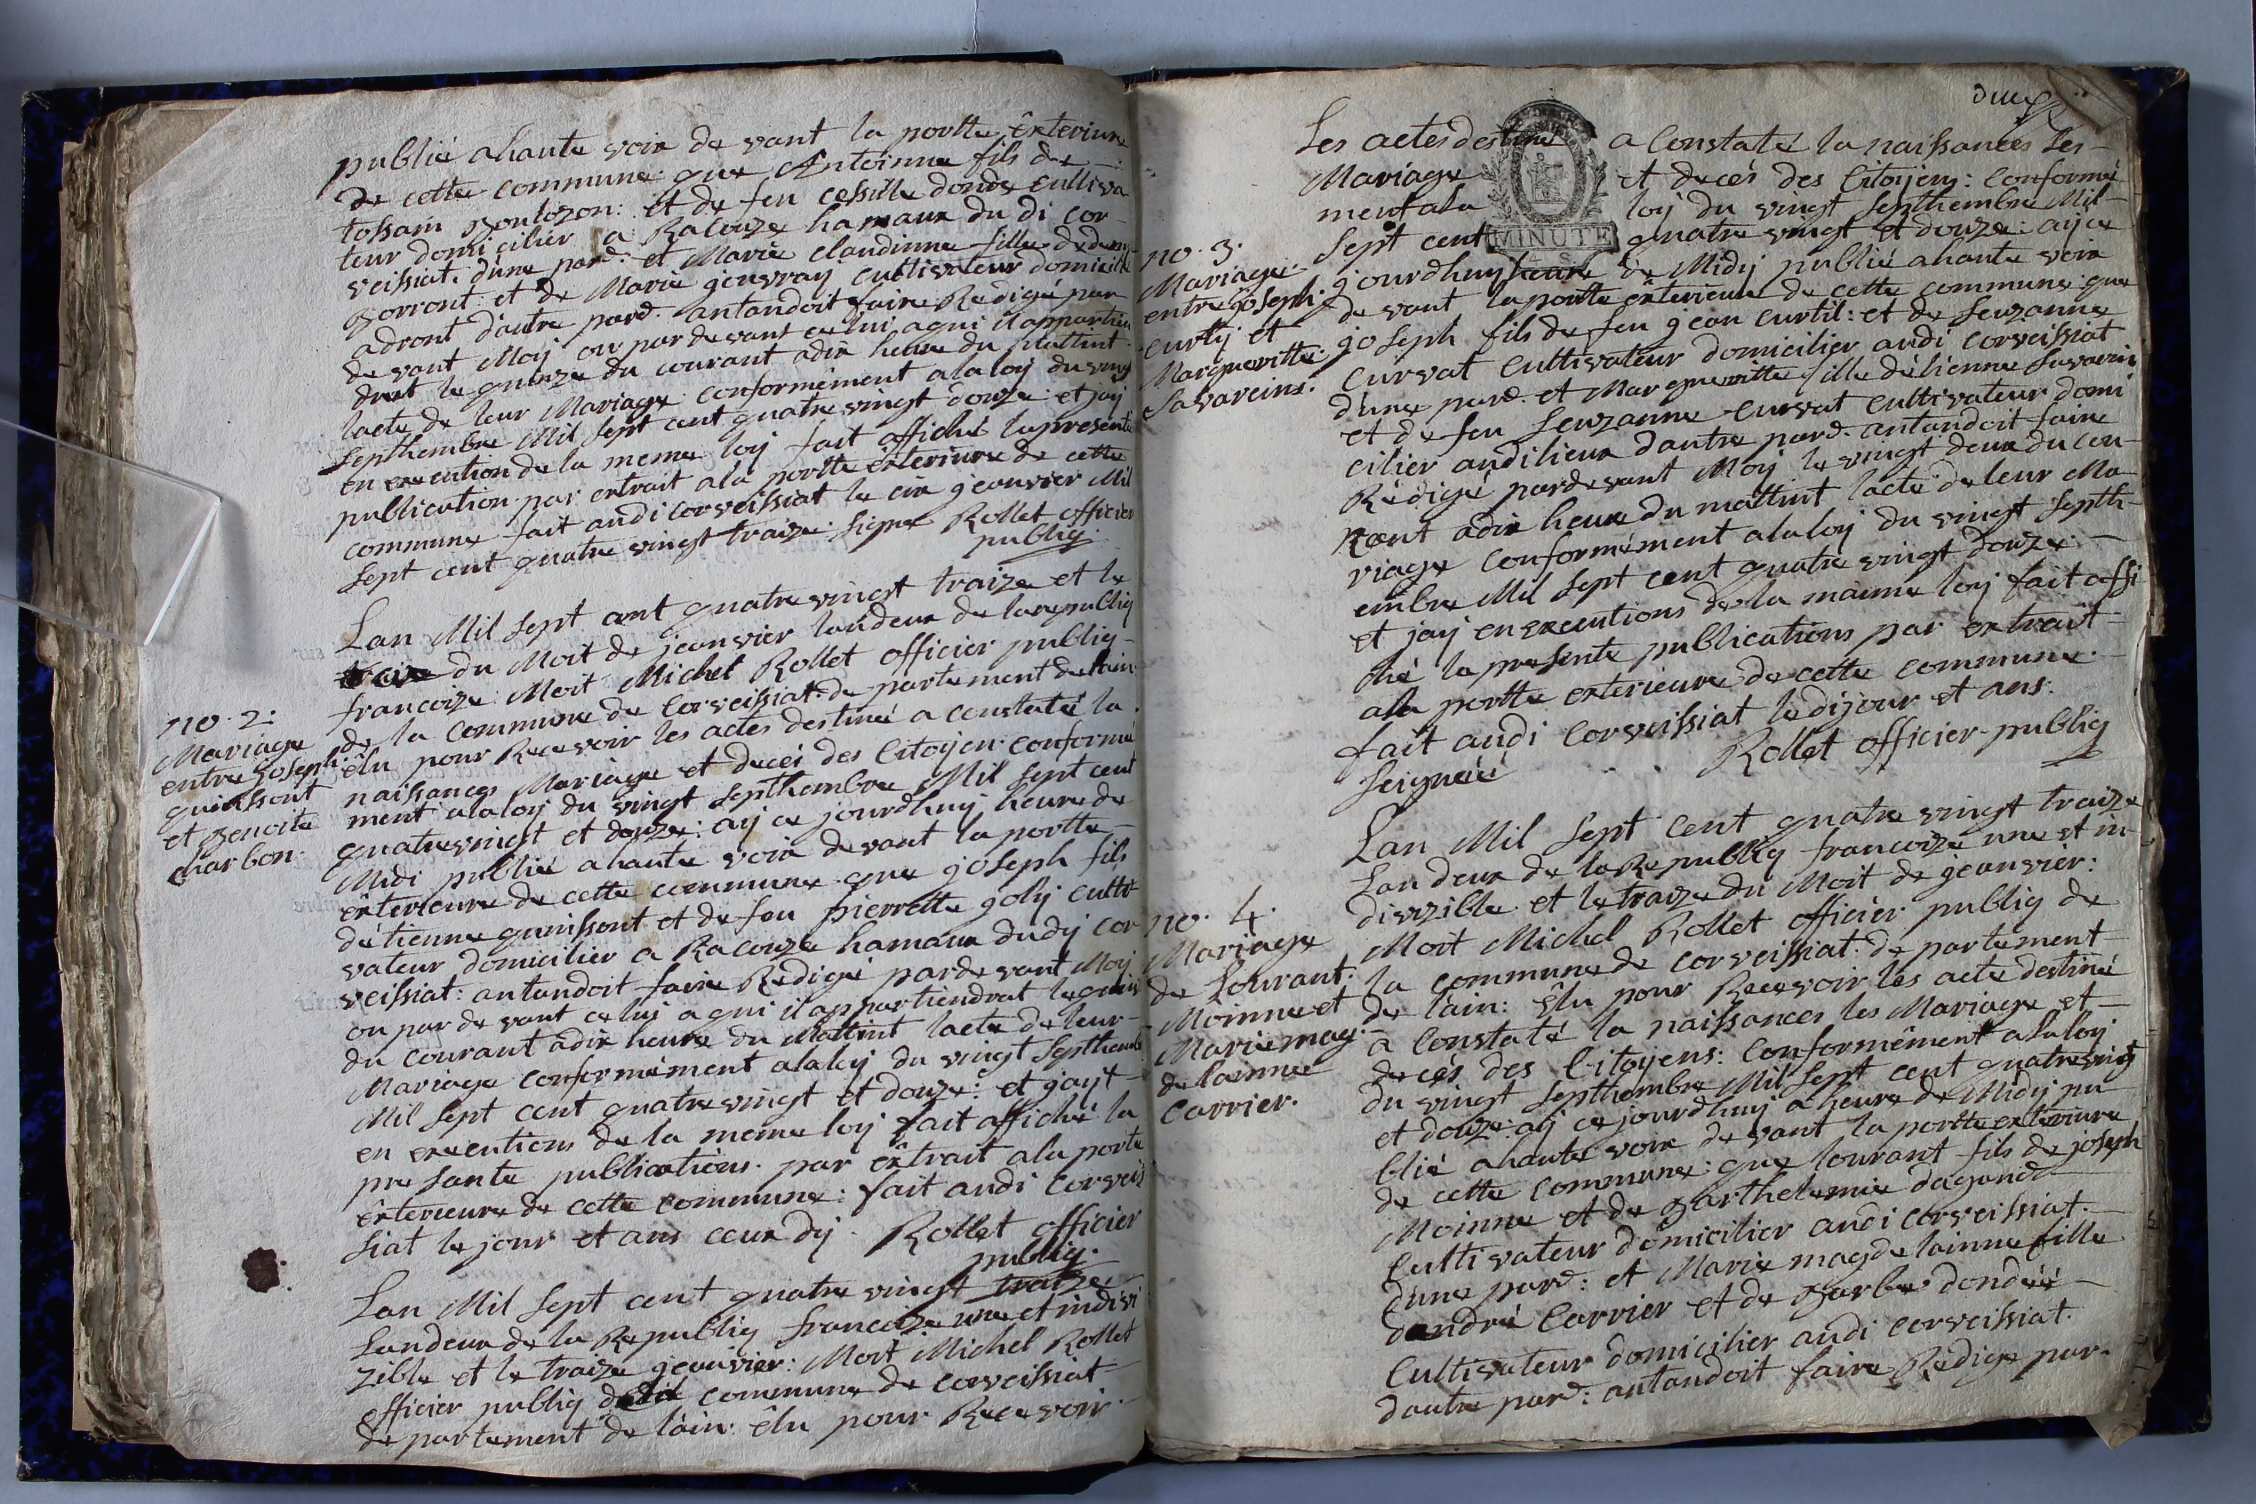 publié ahaute voix de vant la portte êxteriure
de cette commune que Antoinne fils de
tossain Boulozon: et de feu cessille donde cultiva
teur domicilier a Racouze hamaux du di cor-
veissiat. dune pard: et Marie claudinne fille de deny
Borront: et de Marie genvray cultivateur domicille
adront dautre pard. antandoit faire Redigé par
de vant Moy ou par de vant celui aqui il appartien
drat le quinze du courant adix heure du mattint
lacte de leur Mariage conformément alaloy du vingt
Septhembre Mil Sept cent quatre vingt douze: et jay
en execution de la meme loy fait affiché lapresente
publication par extrait ala portte êxteriure de cette
commune fait audi corveissiat le cix jeanvier Mil
Sept cent quatre vingt traize. Signé Rollet officier
publiq
Lan Mil Sept cent quatre vingt traize et le
du Moit de jeanvier landeux de la republiq
francoize Moit Michel Rollet officier publiq
no. 2: de la commune de Corveissiat. de partement de lain
Mariage êlu pour Recevoir les actes destinéé a constaté la
entre Joseph naissances Mariage et decéi des Citoyen conformé
quinssont ment alaloy du vingt septhembre Mil Sept cent
et Benoite quatrevingt et douze: ay ce jourdhuy heure de
charbon. Midi publié ahaute voix devant la portte
êxterieure de cette commune que joseph fils
détienne quinssont et de feu pierrette joly culti
vateur domicilier a Racouze hamaux dudy cor
veissiat: antandoit faire Redigé parde vant Moy
ou par de vant celuy a qui il appartiendrat le quinze
du courant adix heure du Mattint lacte de leur
Mariage conformément alaloy du vingt Septhembre
Mil Sept cent quatrevingt et douze: et jayt
en executions de la meme loy fait affiché la
pre sante publications par êxtrait ala porte
êxterieure de cette commune: fait audi corveis
siat le jour et ans ceux dy. Rollet officier
publiq.
Lan Mil Sept cent quatre vingt traize
Landeux de la Republiq francoize une et indivi
zible et le traize jeanvier: Moit Michel Rollet
officier publiq de la commune de corveissiat
de partement de lain: êlu pour Recevoir
deux
Les actes destiné a Constaté la naissances les
Mariage et decés des Citoyens: conformé
ment ala loy du vingt Septhembre Mil
MINUTE
Sept cent quatre vingt et douze: ay ce
no. 3. jourdhuy heure de Midy publié ahaute voix
Mariage de vant laportte êxterieure de cette commune que
entre joseph joseph fils de feu jean curtil: et de Seuzanne
curty et curvat cultivateur domicilier audi corveissiat
Margueritte dune pard. et Marguerite fille détienne Savarin
Savareins. et de feu Seuzanne curvat cultivateur domi
cilier audilieux dautre pard. antandoit faire
Rédigé pardevant Moy le vingt deux du cou-
rant adix heure du mattint lacte de leur Ma
riage conformément alaloy du vingt Septh-
embre Mil Sept cent quatre vingt douze.
et jay en executions de la maime loy fait affi
ché la presente publications par extrait
ala portte exterieure de cette commune.
fait audi corveissiat ledijour et ans.
Seignéé Rollet officier publiq
Lan Mil Sept cent quatre vingt traize
Lan deux de la Republiq francoize une et in-
divizible et le traize du Moit de jeanvier:
no. 4. Moit Michel Rollet officier publiq de
Mariage la commune de corveissiat. de partement
de Lourant. de lain: êlu pour Recevoir les acte destiné
Moinne et a constaté la naissances les Mariage et
Marie mag- decés des Citoyens: conformément alaloy
de lainne du vingt Septhembre Mil Sept cent quatrevingt
Carrier. et douze: ay ce jourdhuy a heure de Midy pu
blié ahaute voix de vant la portte exteriure
de cette commune: que lourant fils de joseph
Moinne et de Barthelemie dagand
Cultivateur domicilier audi corveissiat.
dune pard: et Marie magde lainne fille
dandré Carrier et de Barbe dondéé
Cultivateur domicilier audi corveissiat.
dautre pard: antandoit faire Redige par.